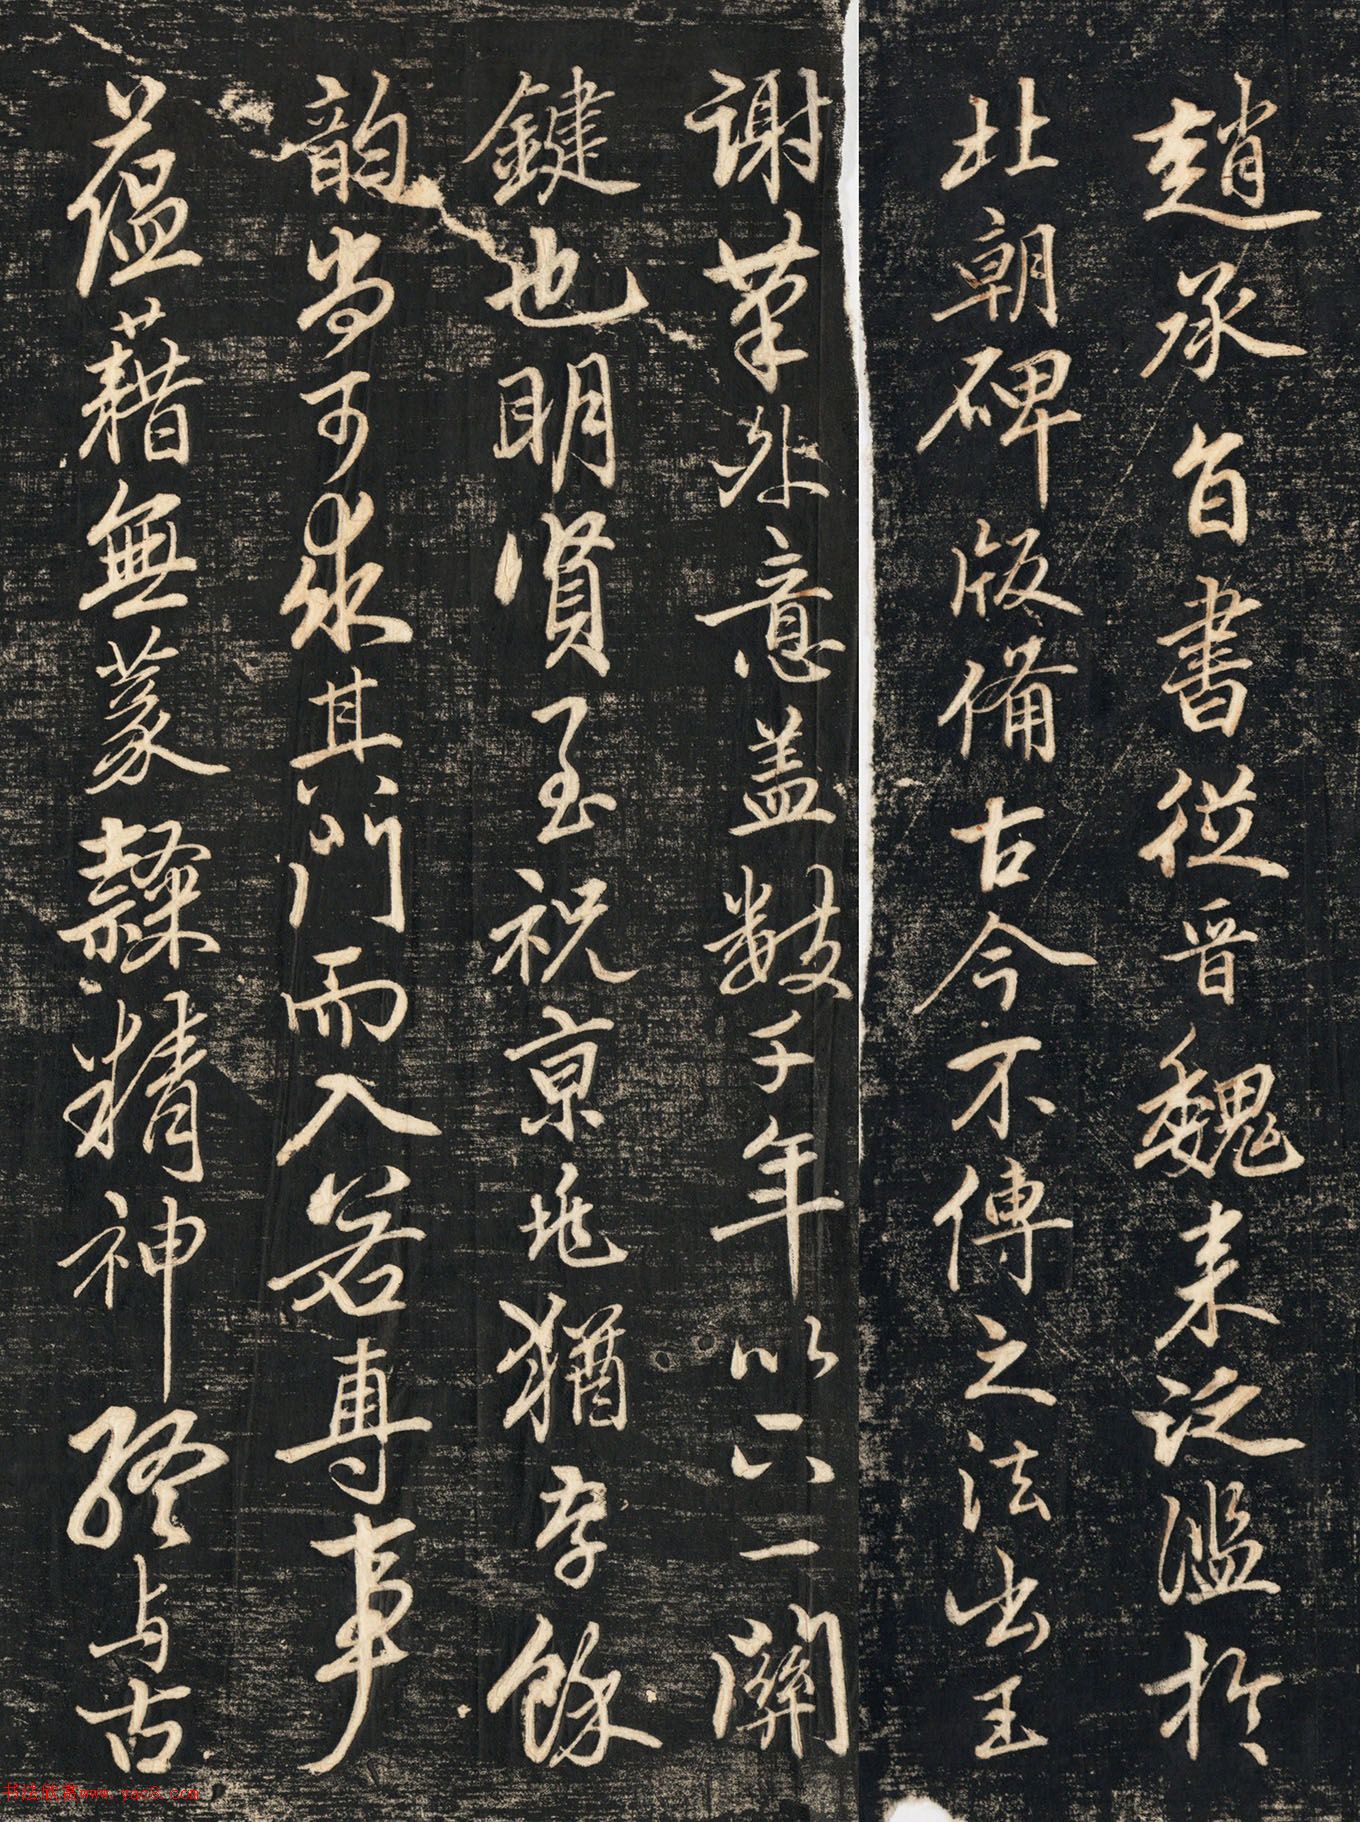 趙承旨書從晋魏来泛濫於
北朝碑版備古今不傳之法出王
謝筆外意盖數千年以下一關
鍵也明賢至祝京兆猶存餘
韵尚可求其門而入若專事
蘊藉無篆隸精神終与古
书法欣赏www.yac8.com